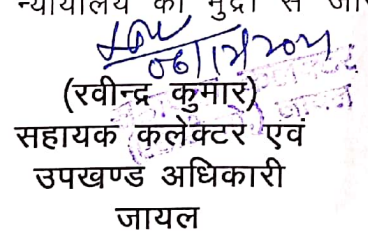 न्यायालय की मुद्रा से
(रवीन्द्र कुमार)
सहायक कलेक्टर एवं
उपखण्ड अधिकारी
जायल